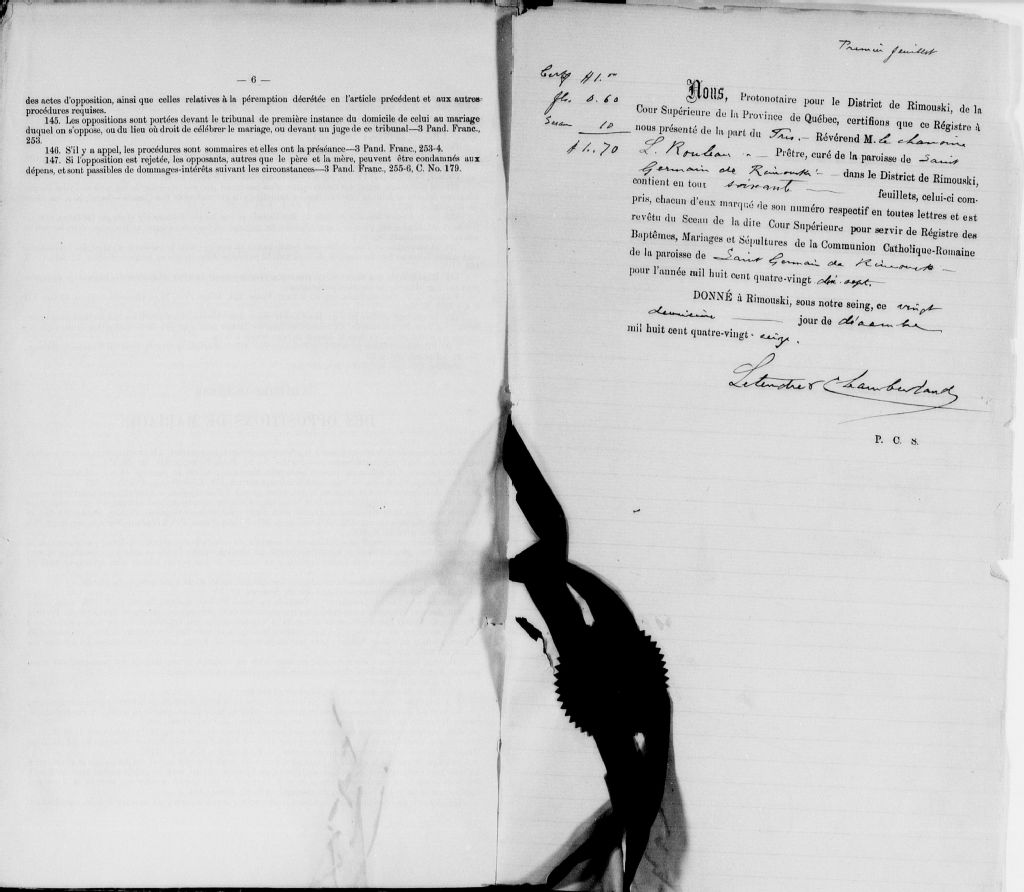 — 6 —
des actes d'opposition, ainsi que celles relatives à la péremption décrétée en l'article précédent et aux autres
procédures requises.
145. Les oppositions sont portées devant le tribunal de première instance du domicile de celui au mariage
duquel on s'oppose, ou du lieu où droit de célébrer le mariage, ou devant un juge de ce tribunal—3 Pand. Franc.,
253.
146. S'il y a appel, les procédures sont sommaires et elles ont la préséance—3 Pand. Franc., 253-4.
147. Si l'opposition est rejetée, les opposants, autres que le père et la mère, peuvent être condamnés aux
dépens, et sont passibles de dommages-intérêts suivant les circonstances—3 Pand. Franc., 255-6, C. No. 179.
Premier feuillet
Certf $1.00
fls. 0.60
Sceau 10
$1.70
Nous, Protonotaire pour le District de Rimouski, de la
Cour Supérieure de la Province de Québec, certifions que ce Régistre à
nous présenté de la part du Très.— Révérend M. le chanoine
L. Rouleau — Prêtre, curé de la paroisse de Saint
Germain de Rimouski — dans le District de Rimouski,
contient en tout soixante — feuillets, celui-ci com-
pris, chacun d'eux marqué de son numéro respectif en toutes lettres et est
revêtu du Sceau de la dite Cour Supérieure pour servir de Régistre des
Baptêmes, Mariages et Sépultures de la Communion Catholique-Romaine
de la paroisse de Saint Germain de Rimouski —
pour l'année mil huit cent quatre-vingt dix-sept.
DONNÉ à Rimouski, sous notre seing, ce vingt
deuxième — jour de décembre
mil huit cent quatre-vingt- seize.
Letendre & Chamberland
P. C. S.